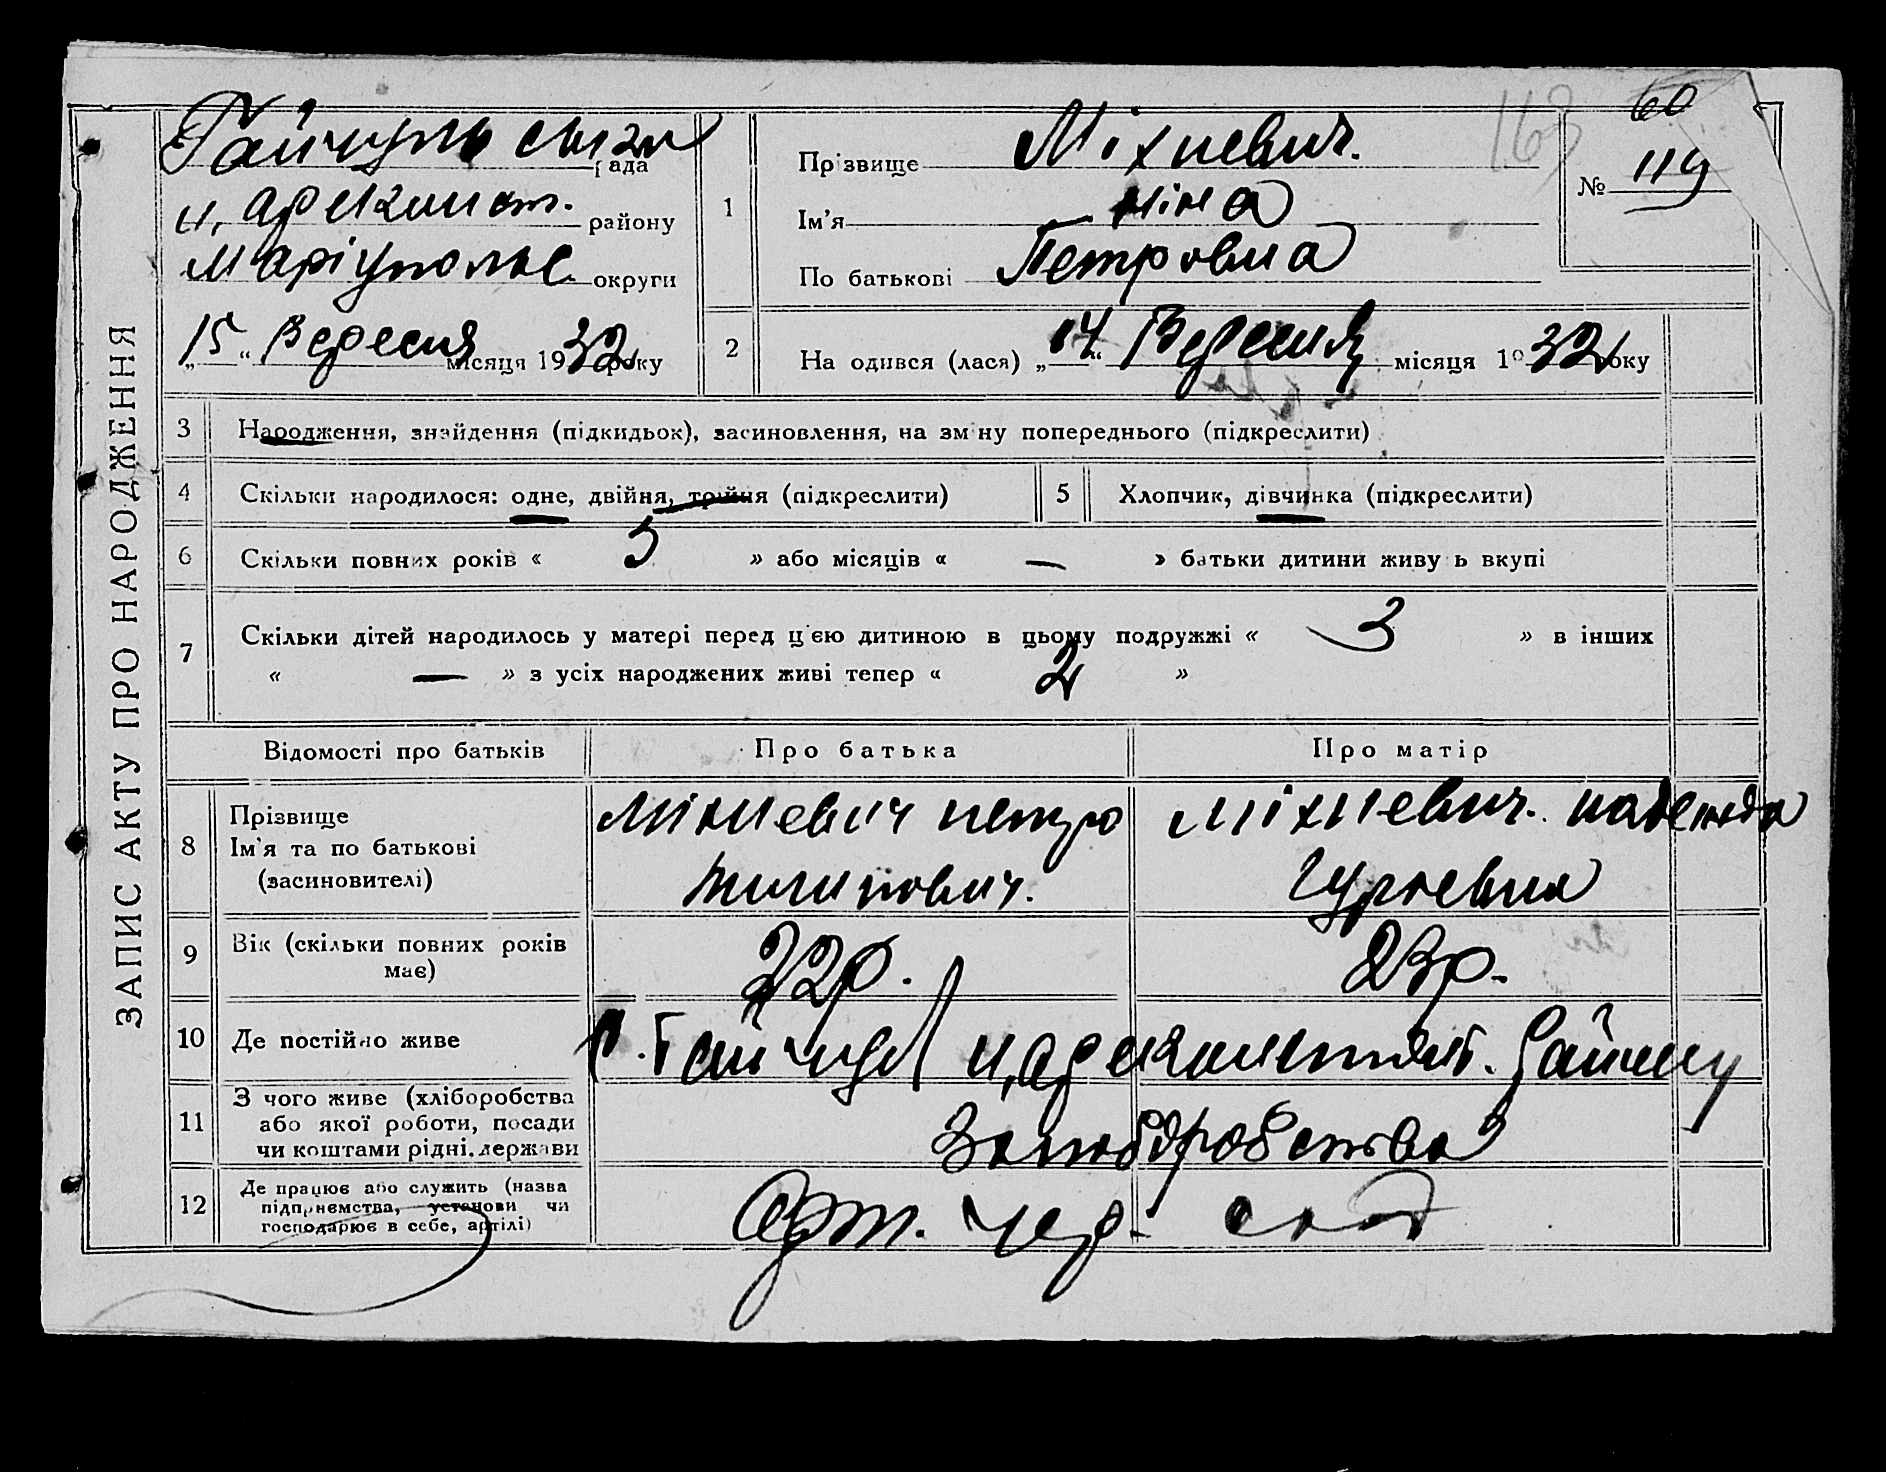 60
163
№ 119
ЗАПИС АКТУ ПРО НАРОДЖЕННЯ
Гайчуль рада
району
Маріупольс. округи
„15“ Вересня місяця 1932 року
1
Прізвище Міхневич.
Ім'я Ніна
По батькові Петровна
2
На одився (лася) „14“ Вересня місяця 1932 року
3 Народження, знайдення (підкидьок), засиновлення, на зміну попереднього (підкреслити)
4 Скільки народилося: одне, двійня, трійня (підкреслити)
5 Хлопчик, дівчинка (підкреслити)
6 Скільки повних років « 5 » або місяців « — » батьки дитини живуть вкупі
7 Скільки дітей народилось у матері перед цією дитиною в цьому подружжі « 3 » в інших
« — » з усіх народжених живі тепер « 2 »
Відомості про батьків Про батька Про матір
8 Прізвище
Ім'я та по батькові
(засиновителі)
Міхневич петро
Міхневич. надежда
9 Вік (скільки повних років
має)
22р. 23р.
10 Де постійно живе
с. Гайчул
11 З чого живе (хліборобства
або якої роботи, посади
чи коштами рідні, держави
12 Де працює або служить (назва
підприємства, установи чи
господарює в себе, артілі)
Арт. чер.